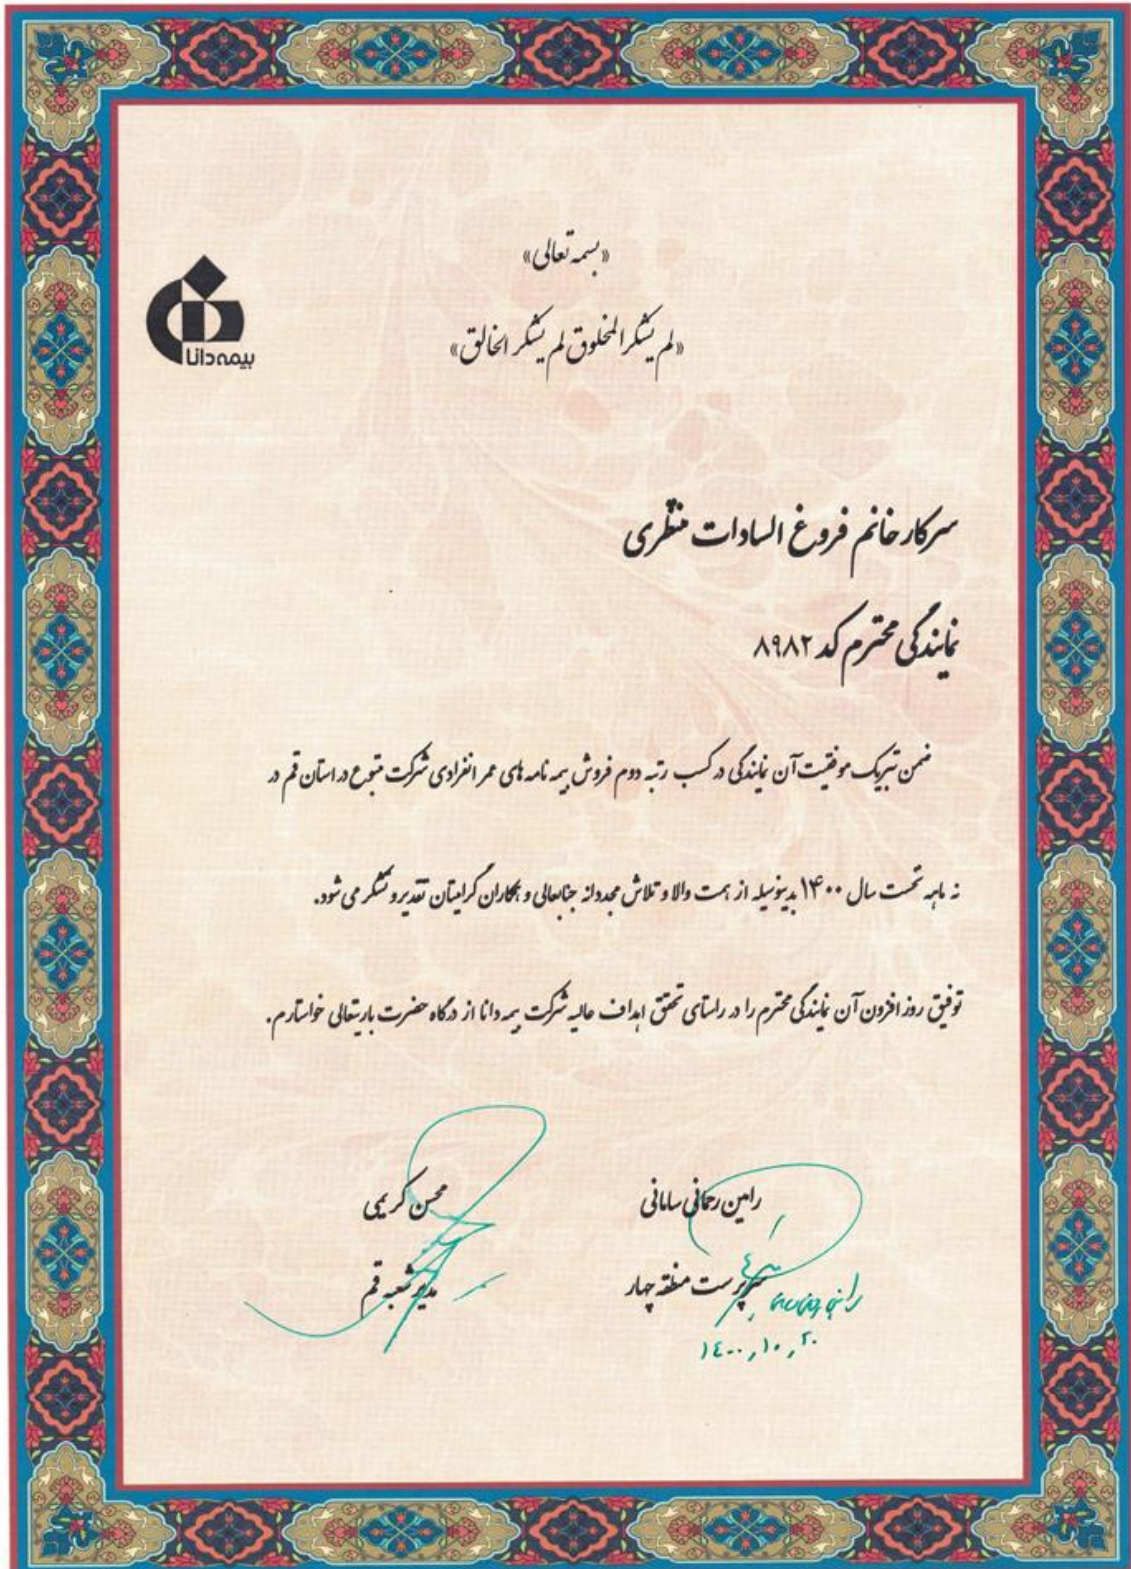 «بسمه تعالی»
«لم یشکر المخلوق لم یشکر الخالق»
بیمه دانا
سرکار خانم فروغ السادات منتظری
نمایندگی محترم کد ۸۹۸۲
ضمن تبریک موفقیت آن نمایندگی در کسب رتبه دوم فروش بیمه نامه های عمر انفرادی شرکت متبوع در استان قم در
نه ماهه نخست سال ۱۴۰۰ بدینوسیله از همت والا و تلاش مجدانه جنابعالی و همکاران گرامیتان تقدیر و تشکر می شود.
توفیق روز افزون آن نمایندگی محترم را در راستای تحقق اهداف عالیه شرکت بیمه دانا از درگاه حضرت باریتعالی خواستارم.
رامین رحمانی سامانی
محسن کریمی
سرپرست منطقه چهار
مدیر شعبه قم
۱۴۰۰,۱۰,۲۰